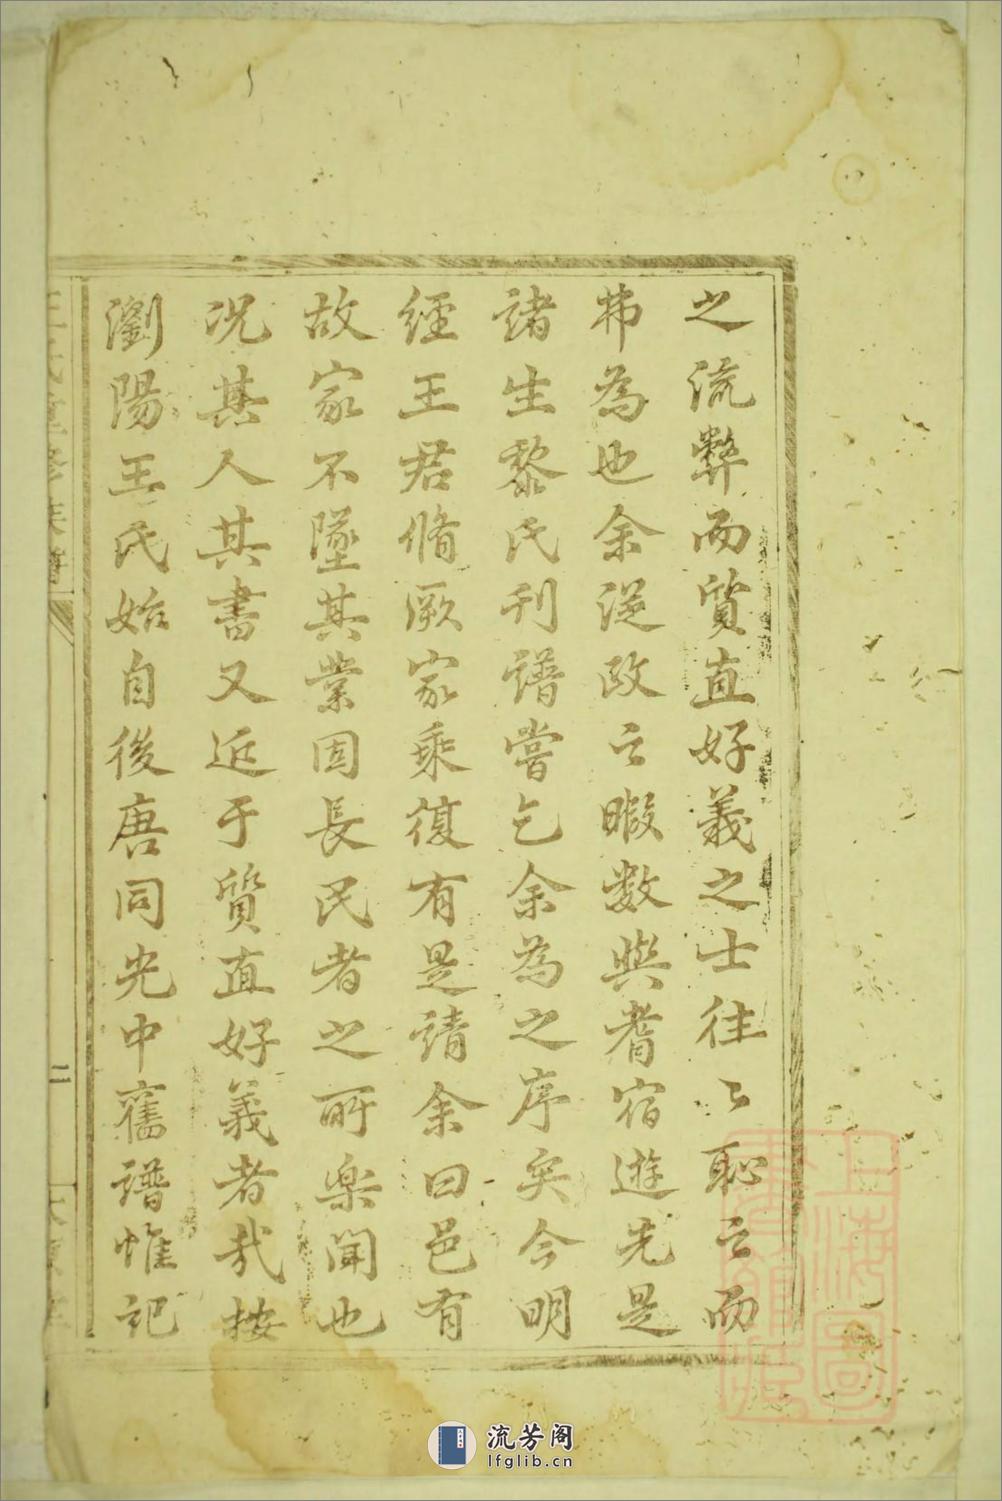 之流弊而質直好義之士往〻恥之而
弗為也余從政之暇数與耆宿遊先是
諸生黎氏刊譜嘗乞余為之序矣今明
經王君脩厥家乘復有是請余曰邑有
故家不墜其業固長民者之所樂聞也
况其人其書又近于質直好義者哉按
瀏陽王氏始自後唐同光中舊譜惟記
二
上海圖
流芳阁
lfglib.cn